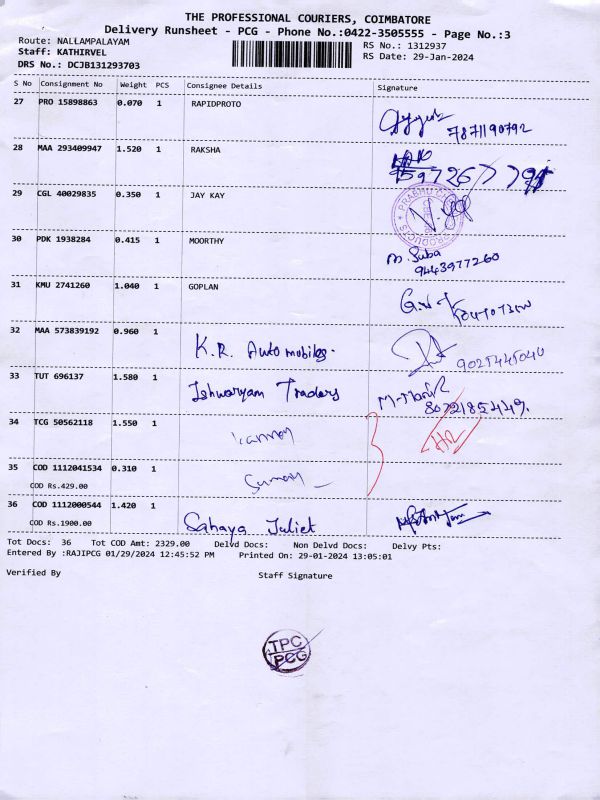 THE PROFESSIONAL COURIERS, COIMBATORE
Delivery Runsheet - PCG - Phone No.:0422-3505555 - Page No.:3
Route: NALLAMPALAYAM
RS No.: 1312937
Staff: KATHIRVEL
RS Date: 29-Jan-2024
DRS No.: DCJB131293703
S No Consignment No Weight PCS Consignee Details Signature
27 PRO 15898863 0.070 1 RAPIDPROTO
7871190792
28 MAA 293409947 1.520 1 RAKSHA
29 CGL 40029835 0.350 1 JAY KAY
30 PDK 1938284 0.415 1 MOORTHY
M. Suba
9443977260
31 KMU 2741260 1.040 1 GOPLAN
32 MAA 573839192 0.960 1 K.R. Automobiles.
9025445040
33 TUT 696137 1.580 1 Ishwaryam Traders
8072185449.
34 TCG 50562118 1.550 1
35 COD 1112041534 0.310 1
COD Rs.429.00
36 COD 1112000544 1.420 1 Sahaya Juliet
COD Rs.1900.00
Tot Docs: 36 Tot COD Amt: 2329.00 Delvd Docs: Non Delvd Docs: Delvy Pts:
Entered By :RAJIPCG 01/29/2024 12:45:52 PM Printed On: 29-01-2024 13:05:01
Verified By Staff Signature
TPC
PCG